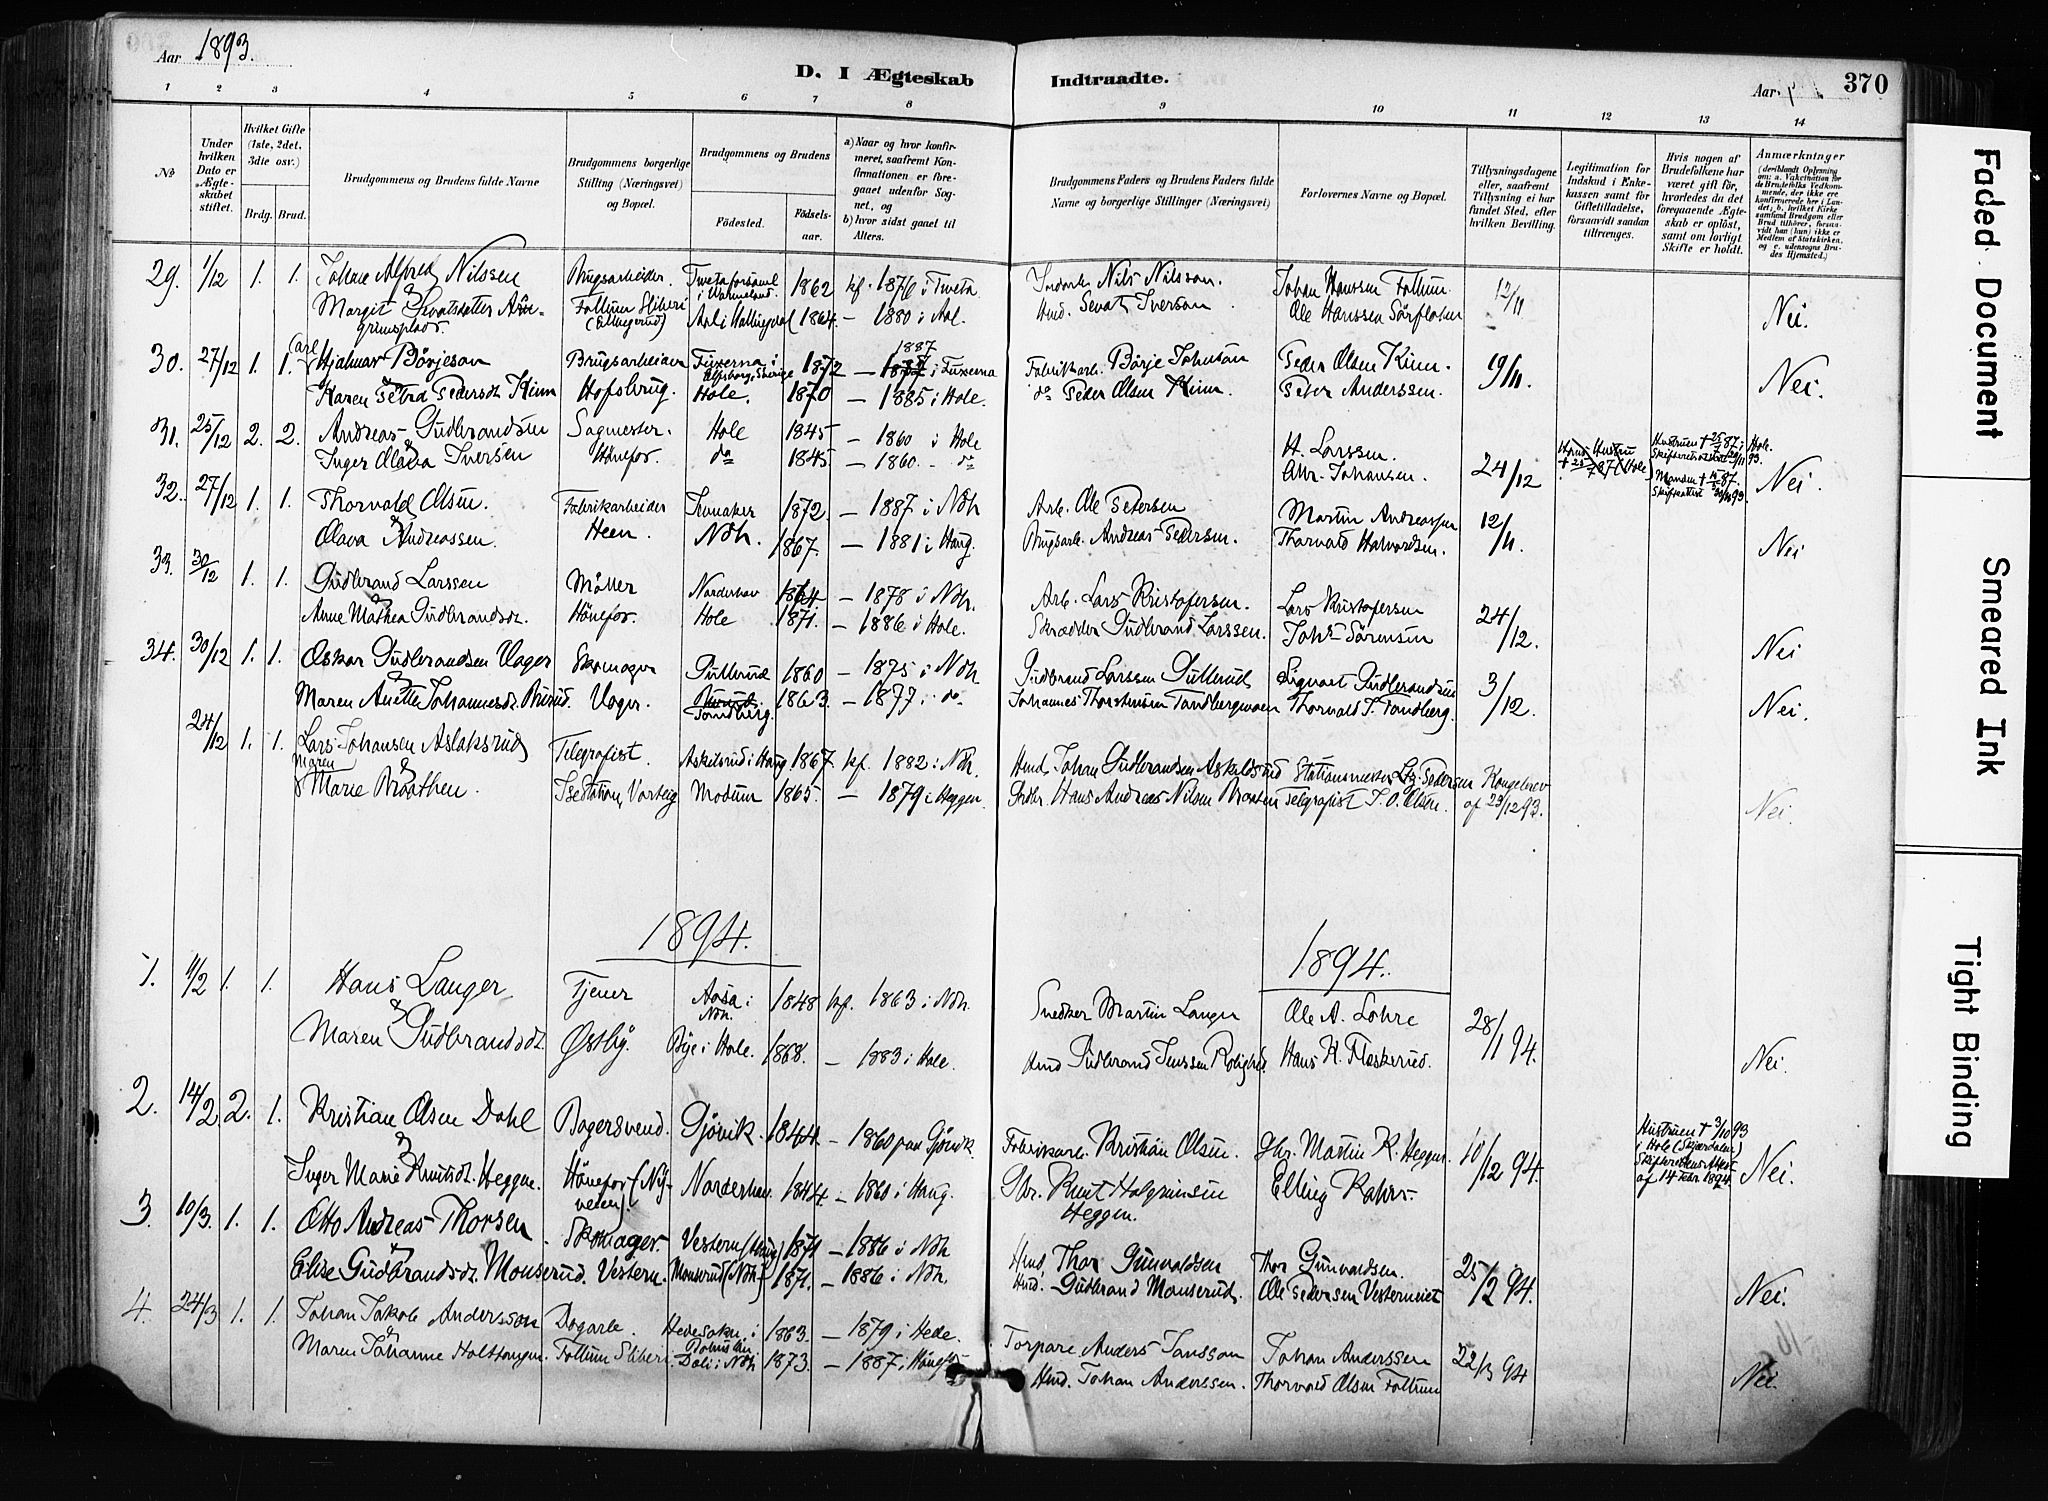 Aar 1893.
D. I Ægteskab Indtraadte.
Aar 370
1 2 3 4 5 6 7 8 9 10 11 12 13 14
No
Under hvilken Dato er Ægteskabet stiftet.
Hvilket Gifte (1ste, 2det, 3die osv.)
Brdg. Brud.
Brudgommens og Brudens fulde Navne
Brudgommens borgerlige Stilling (Næringsvei) og Bopæl.
Brudgommens og Brudens
Fødested. Fødselsaar.
a) Naar og hvor konfirmeret, saafremt Konfirmationen er foregaaet udenfor Sognet, og
b) hvor sidst gaaet til Alters.
Brudgommens Faders og Brudens Faders fulde Navne og borgerlige Stillinger (Næringsvei)
Forlovernes Navne og Bopæl.
Tillysningsdagene eller, saafremt Tillysning ei har fundet Sted, efter hvilken Bevilling.
Legitimation for Indskud i Enkekassen samt for Giftetilladelse, forsaavidt saadan tiltrænges.
Hvis nogen af Brudefolkene har været gift før, hvorledes da det foregaaende Ægteskab er opløst, samt om lovligt Skifte er holdt.
Anmærkninger
29. 1/12 1. 1. Johan Alfred Nilssen Brugsarbeider. 1862 kf. 1876 i Tveta Nils Nilsson. Johan Hanssen Follum 12/11
& Margit Follum Sliberi (Ellingerud) Aal i Hallingdal 1864 – 1880 i Aal. Gmd. Sevat Iverson Ole Hanssen Sørflaten Nei.
30. 27/12 1. 1. Carl Hjalmar Børjeson Brugsarbeider Fuxerna i Elfsborg, Sverige 1872 – 1887 i Fuxerna Fabrikarb. Börje Johnson Peder Olsen Kinn. 19/11
& Karen Petra Pedersdt. Kinn Hofsbrug. Hole. 1870 – 1885 i Hole. do Peder Olsen Kinn. Peter Anderssen. Nei.
31. 25/12 2. 2. Andreas Gudbrandsen Sagmester. Hole 1845 – 1860 i Hole H. Larssen. Hustruen † 25/7 87 i Hole.
& Inger Olava Iversen Hønefos. do 1845 – 1860 - do Chr. Johansen. 24/12 Manden † Nei.
32. 27/12 1. 1. Thorvald Olsen. Fabrikarbeider 1872. – 1887 i Ndh Arb. Ole Petersen Martin Andreassen 12/11
& Olava Andreassen. Heen. Ndh. 1867. – 1881 i Haug. Brugsarb. Andreas Pedersen. Thorvald Halvorsen. Nei
33. 30/12 1. 1. Gudbrand Larssen Møller Norderhov 1864 – 1878 i Ndh. Arb. Lars Kristofersen. Lars Kristofersen 24/12.
& Anne Mathea Gudbrandsdt. Hønefos. Hole 1871. – 1886 i Hole. Skrædder Gudbrand Larssen. Johs Sørensen Nei
34. 30/12 1. 1. Oskar Gudbrandsen Vager Skomager Gullerud 1860 – 1875 i Ndh Gudbrand Larssen Gullerud Sigvart Gudbrandsen 3/12.
& Maren Anette Johannesdt. Vager. Tandberg. 1863. – 1877 i do. Johannes Thorstensen Tandbergmoen Thorvald T. Tandberg. Nei.
24/12 1. 1. Lars Johansen Aslaksrud Telegrafist. Askilsrud i Haug 1867. kf. 1882 i Ndh. Gmd. Johan Gudbrandsen Askilsrud Stationsmester Pedersen Kongebrev
& Maren Marie Braathen. Modum 1865. – 1879 i Heggen. Grdbr. Hans Andreas Nilsen Braaten Telegrafist T. O. Olsen. af 23/12 93. Nei.
1894. 1894.
1. 11/2 1. 1. Hans Langer Tjener Aasa i Ndh. 1848 kf. 1863 i Ndh. Snedker Martin Langer Ole A. Lohre 28/1 94.
& Maren Gudbrandsdt. Østby. Bye i Hole. 1868. – 1883 i Hole. Hmd Gudbrand Jenssen Rolighed. Hans H. Fleskerud. Nei.
2. 14/2 2. 1. Kristian Olsen Dahl Bagersvend. Gjøvik. 1844. – 1860 paa Gjøvik. Fabrikarb. Kristian Olsen. Martin K. Heggen. 10/12 94. Hustruen † 3/10 93 i Hole (Skjærdalen) Skifterettens Attest af 14 febr. 1894.
& Inger Marie Knutsdt. Heggen. Hønefos (Nyveien). Norderhov. 1844 – 1860 i Haug. Gbr. Knut Halgrimsen Heggen. Elling Nei.
3. 10/3. 1. 1. Otto Andreas Thorsen Skomager. Vestern (Haug) 1871 – 1886 i Ndh Hmd. Thor Gunvaldsen Thor Gunvaldsen. 25/2 94.
& Elise Gudbrandsdt. Monserud. Vestern. Monserud (Ndh) 1871. – 1886 i Ndh. Hmd. Gudbrand Monserud. Ole Pedersen Vesterneiet Nei.
4. 24/3 1. 1. Johan Jakob Andersson Dagarb. Hede sokn i Bohuslän 1863. – 1879 i Hede. Torpare Anders Jansson Johan Anderssen 22/3 94
& Maren Johanne Holttangen. Follum Sliberi. Dali i Ndh 1873. – 1887 i Hønefos Hmd. Johan Anderssen. Thorvald Olsen Follum Nei.
Faded Document
Smeared Ink
Tight Binding